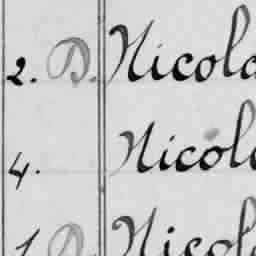 2. D. Nicola
4. Nicol
1. D Nicol